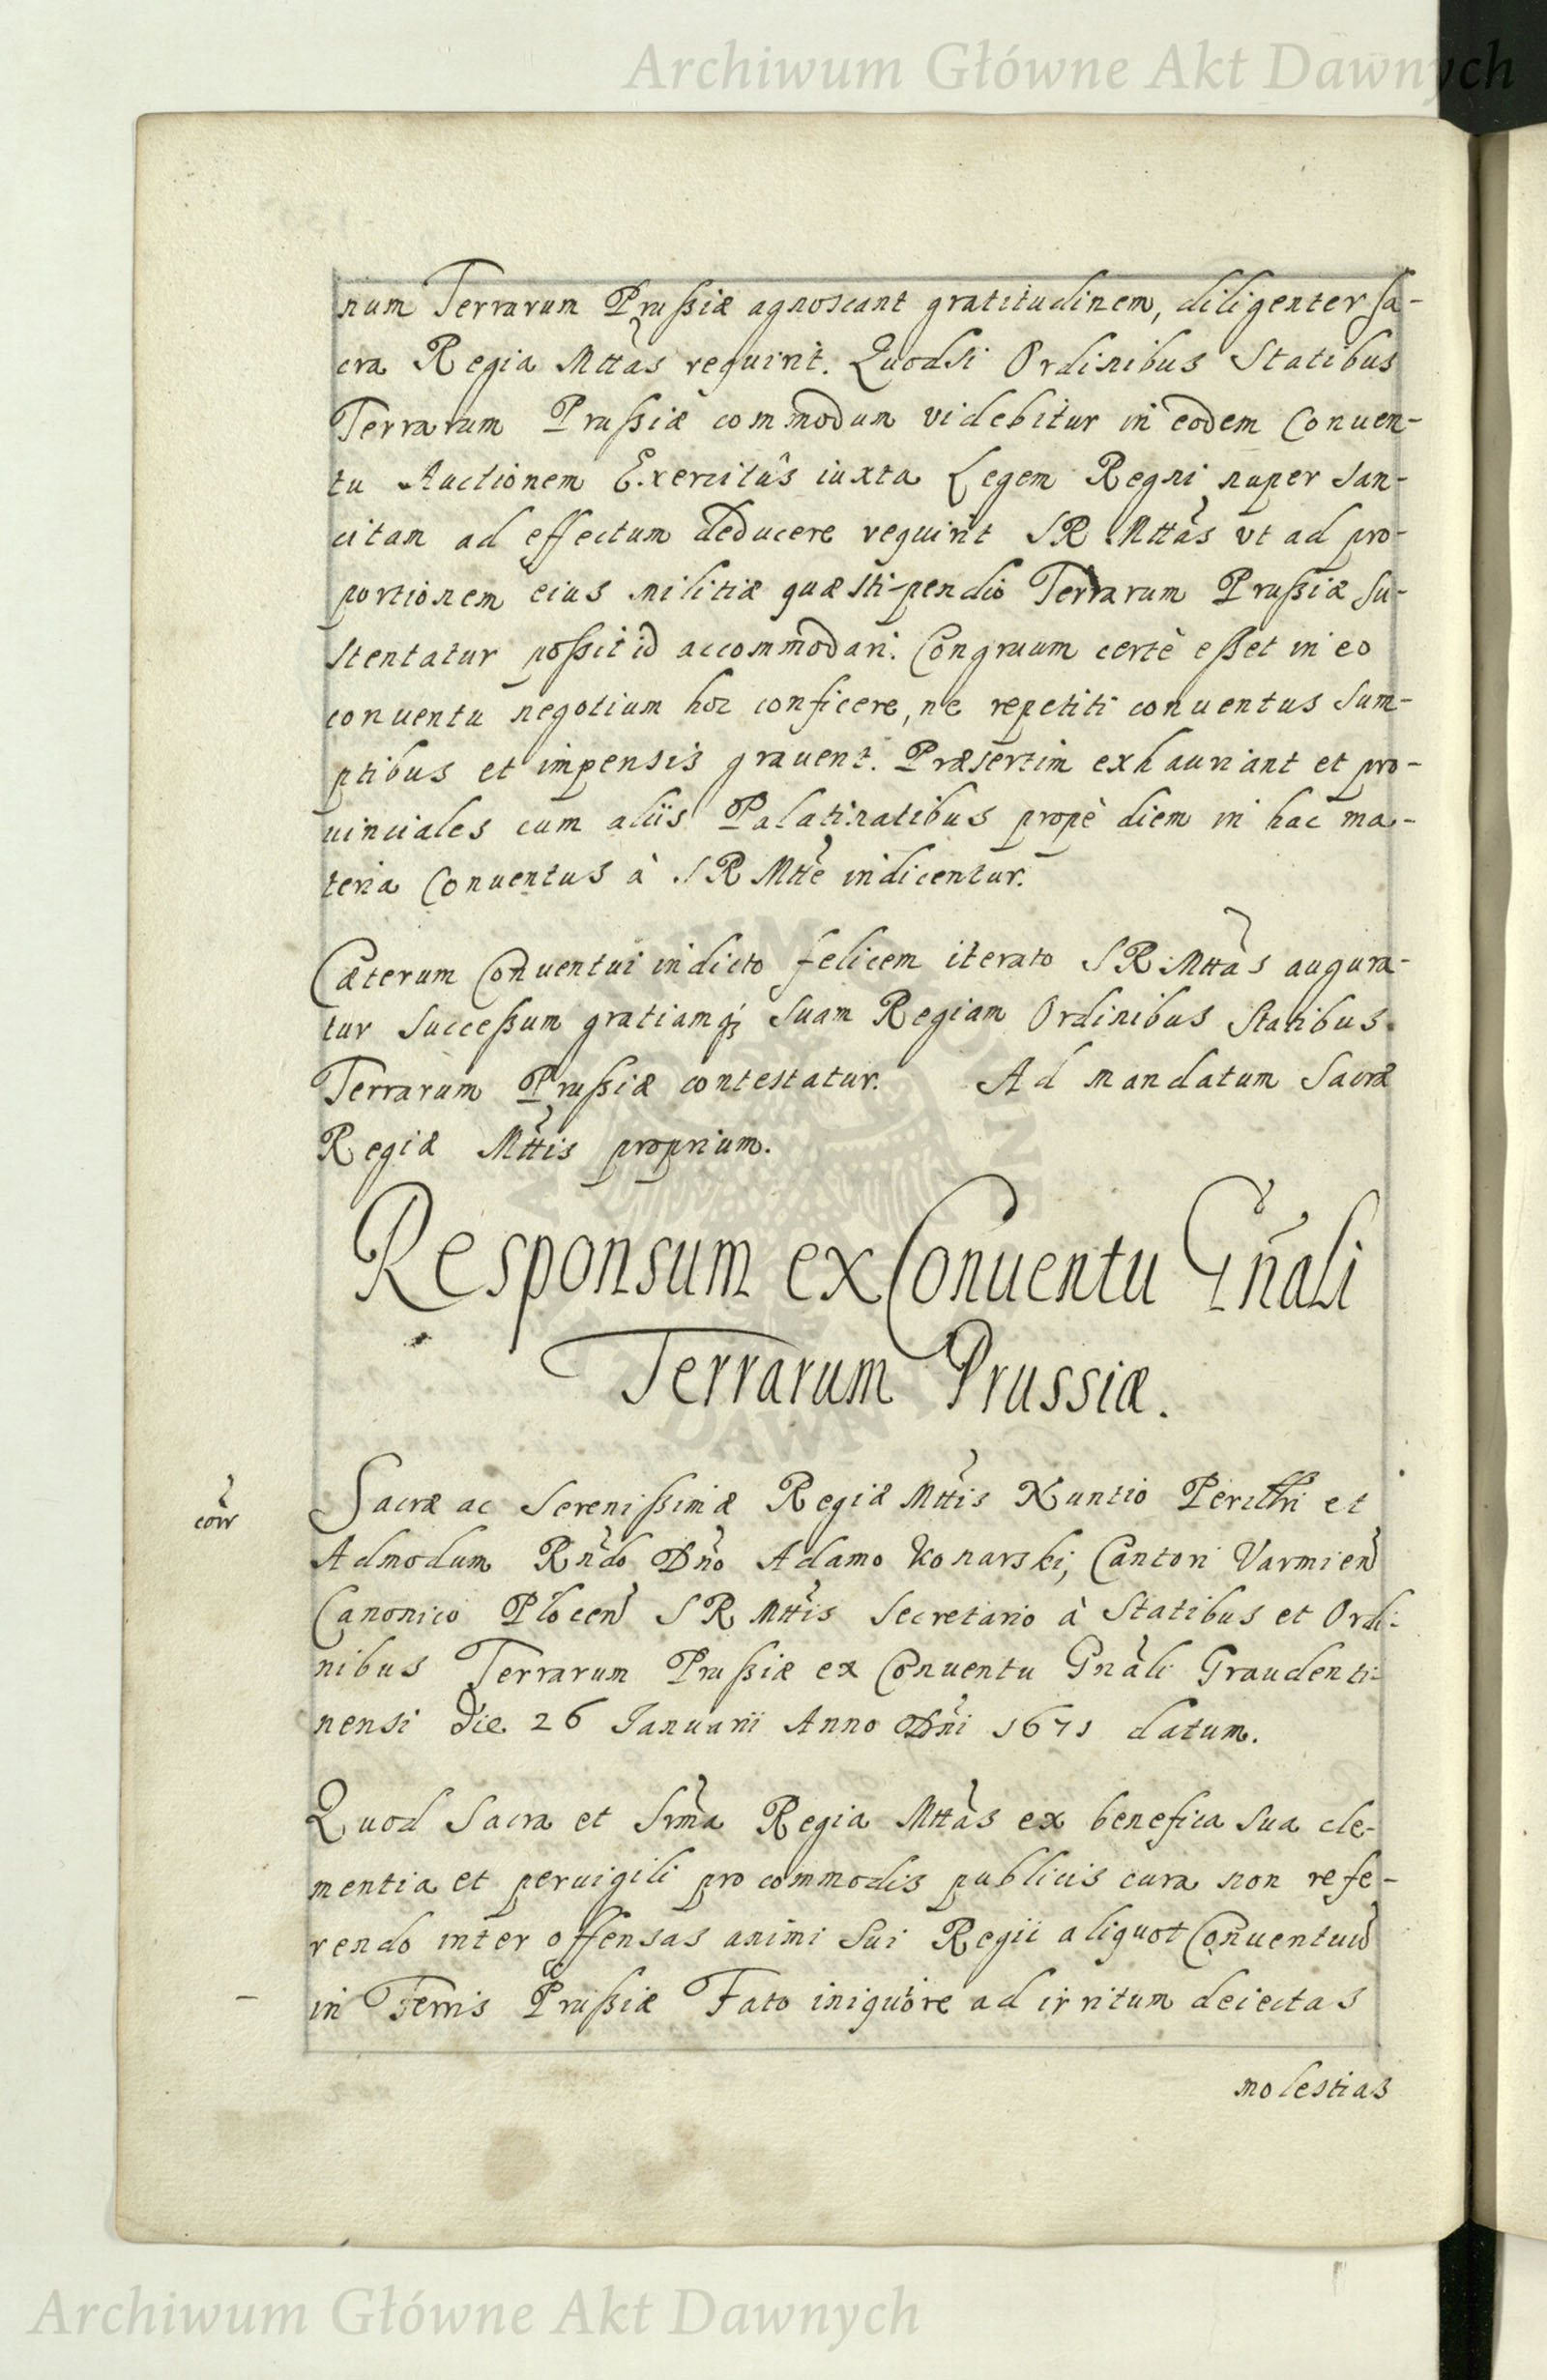 Archiwum Główne Akt Dawnych
num Terrarum Prußiæ agnoscant gratitudinem, diligenter Sa-
cra Regia Mttas requirit. Quodsi Ordinibus Statibus
Terrarum Prußiæ commodum videbitur in eodem Conuen-
tu Auctionem Exercitûs iuxta Legem Regni nuper san-
citam ad effectum deducere requirit SR Mttas vt ad pro-
portionem eius militiæ quæ stipendio Terrarum Prußiæ su-
stentatur poßit id accommodari. Congruum certè eßet in eo
conuentu negotium hoc conficere, ne repetiti conuentus sum-
ptibus et impensis grauent. Præsertim exhauriant et pro-
uinciales cum aliis Palatinatibus propè diem in hac ma-
teria Conuentus à SR Mtte indicentur.
Cæterum Conuentui indicto felicem iterato SR Mttas augura-
tur succeßum gratiamq; suam Regiam Ordinibus Statibus
Terrarum Prußiæ contestatur. Ad mandatum Sacræ
Regiæ Mttis proprium.
Responsum ex Conuentu Gñali
Terrarum Prussiæ.
corr
Sacræ ac Serenißimæ Regiæ Mttis Nuntio Perillri et
Admodum Rndo Dno Adamo Konarski, Cantori Varmien
Canonico Plocen SR Mttis Secretario à Statibus et Ordi-
nibus Terrarum Prußiæ ex Conuentu Gnali Graudenti-
nensi die 26 Ianuarii Anno Dni 1671 datum.
Quod Sacra et Srma Regia Mttas ex benefica sua cle-
mentia et peruigili pro commodis publicis cura non refe-
rendo inter offensas animi sui Regii aliquot Conuentuu
in Terris Prußiæ Fato iniquiore ad irritum deiectas
molestias
Archiwum Główne Akt Dawnych